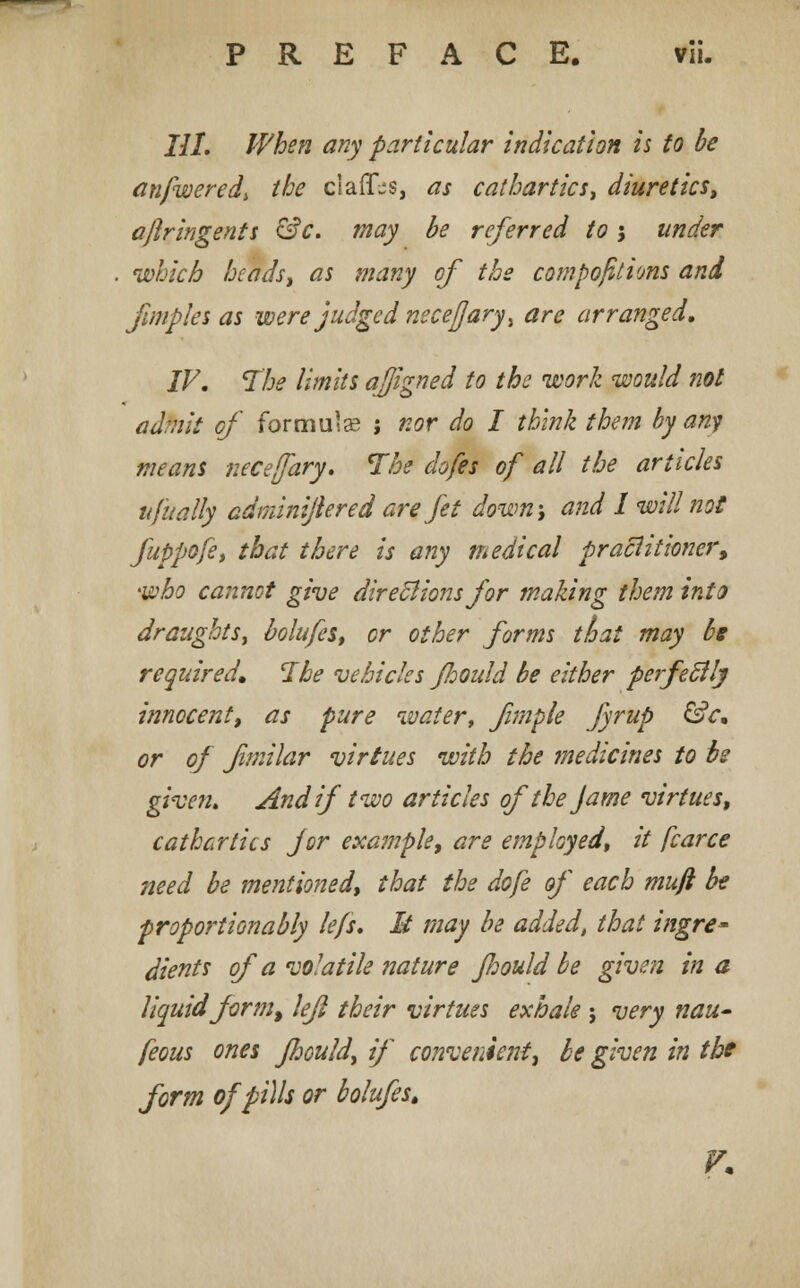 PREFACE. vii.
III. When any particular indication is to be
anſwered, the claſſes, as cathartics, diuretics,
aſtringents &c. may be referred to ; under
which heads, as many of the compoſitions and
ſimples as were judged neceſſary, are arranged.
IV. The limits aſſigned to the work would not
admit of formulæ ; nor do I think them by any
means neceſſary. The doſes of all the articles
uſually adminiſtered are ſet down ; and I will not
ſuppoſe, that there is any medical practitioner,
who cannot give directions for making them into
draughts, boluſes, or other forms that may be
required. The vehicles ſhould be either perfectly
innocent, as pure water, ſimple ſyrup &c.
or of ſimilar virtues with the medicines to be
given. And if two articles of the ſame virtues,
cathartics for example, are employed, it ſcarce
need be mentioned, that the doſe of each muſt be
proportionably leſs. It may be added, that ingre-
dients of a volatile nature ſhould be given in a
liquid form, leſt their virtues exhale ; very nau-
ſeous ones ſhould, if convenient, be given in the
form of pills or boluſes.
V.